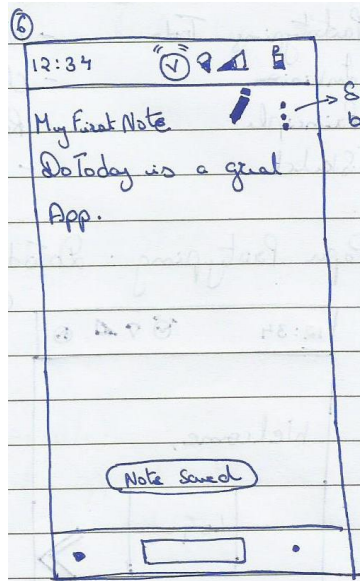 6
12:34
My First Note
DoToday is a great
App.
Note saved